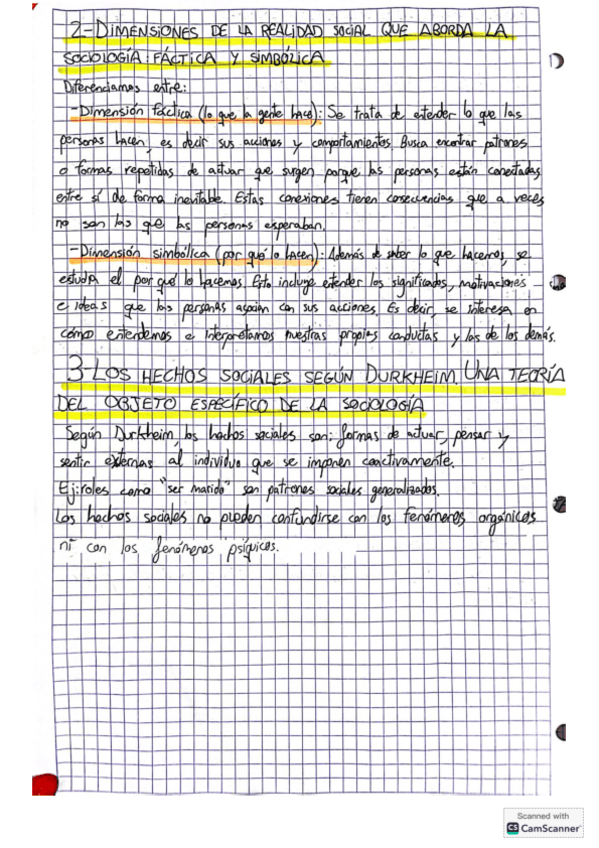 2-DIMENSIONES DE LA REALIDAD SOCIAL QUE ABORDA LA
SOCIOLOGÍA: FÁCTICA Y SIMBÓLICA
Diferenciamos entre:
-Dimensión fáctica (lo que la gente hace): Se trata de entender lo que las
personas hacen, es decir sus acciones y comportamientos. Busca encontrar patrones
o formas repetidas de actuar que surgen porque las personas están conectadas
entre sí de forma inevitable. Estas conexiones tienen consecuencias que a veces
no son las que las personas esperaban.
-Dimensión simbólica (por qué lo hacen): Además de saber lo que hacemos, se
estudia el por qué lo hacemos. Esto incluye entender los significados, motivaciones
e ideas que las personas asocian con sus acciones. Es decir, se interesa en
cómo entendemos e interpretamos nuestras propias conductas y las de los demás.
3-LOS HECHOS SOCIALES SEGÚN DURKHEIM. UNA TEORÍA
DEL OBJETO ESPECÍFICO DE LA SOCIOLOGÍA
Según Durkheim, los hechos sociales son: formas de actuar, pensar y
sentir externas al individuo que se imponen coactivamente.
Ej: roles como "ser marido" son patrones sociales generalizados.
Los hechos sociales no pueden confundirse con los fenómenos orgánicos
ni con los fenómenos psíquicos.
Scanned with
CS CamScanner